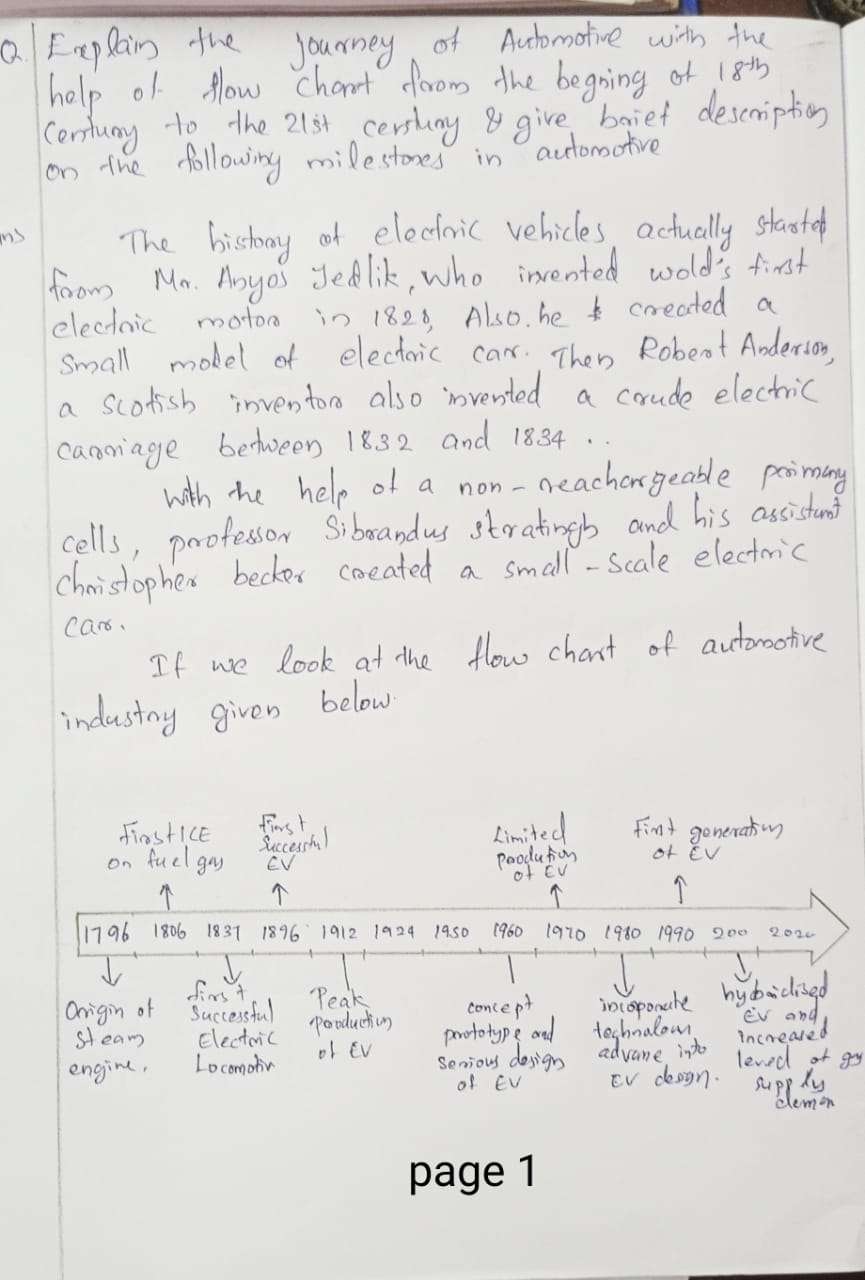 Q. Explain the journey of Automotive with the
help of flow chart from the begning of 18th
Century to the 21st century & give brief description
on the following milestones in automotive
ans The history of electric vehicles actually started
from Mr. Anyos Jedlik, who invented wold's first
electric motor in 1828, Also. he created a
small model of electric car. Then Robert Anderson,
a Scotish inventor also invented a crude electric
carriage between 1832 and 1834 ..
With the help of a non-reachargeable primary
cells, professor Sibrandus stratingh and his assistant
Christopher becker created a small-scale electric
car.
If we look at the flow chart of automotive
industry given below.
First ICE on fuel gas
First Successful EV
Limited Production of EV
First generation of EV
1796 1806 1837 1896 1912 1924 1950 1960 1970 1980 1990 200 2020
Origin of steam engine,
first Successful Electric Locomotiv
Peak production of EV
concept prototype and Serious design of EV
incoporate advane into EV design.
hybridised EV and increased level of gas supply deman
page 1